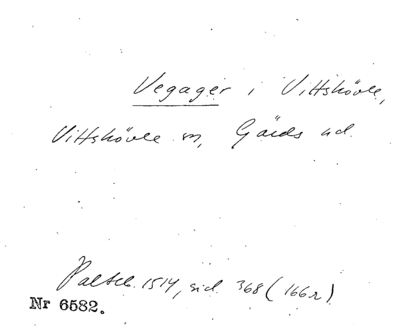 Vegager i Vittskövle,
Vittskövle sn, Gärds hd.
Palteb. 1514, sid. 368 (166r)
Nr 6582.